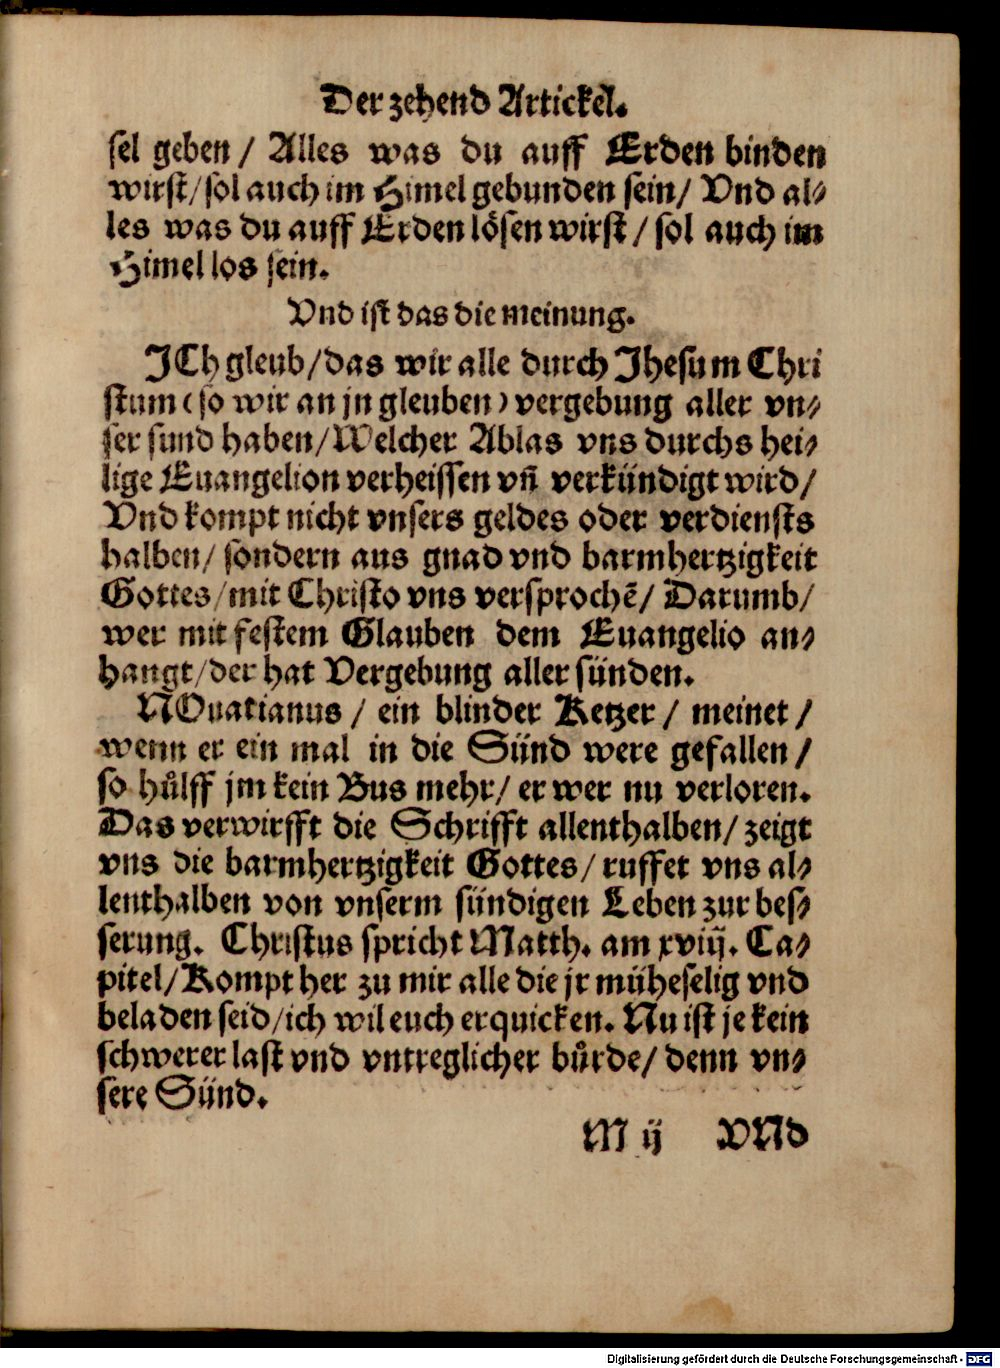 Der zehend Artickel.
sel geben / Alles was du auff Erden binden
wirst / sol auch im Himel gebunden sein / Vnd al⸗
les was du auff Erden lösen wirst / sol auch im
Himel los sein.
Vnd ist das die meinung.
JCh gleub / das wir alle durch Jhesum Chri
stum (so wir an jn gleuben) vergebung aller vn⸗
ser sund haben / Welcher Ablas vns durchs hei⸗
lige Euangelion verheissen vñ verkündigt wird /
Vnd kompt nicht vnsers geldes oder verdiensts
halben / sondern aus gnad vnd barmhertzigkeit
Gottes / mit Christo vns versprochẽ / Darumb /
wer mit festem Glauben dem Euangelio an⸗
hangt / der hat Vergebung aller sünden.
NOuatianus / ein blinder Ketzer / meinet /
wenn er ein mal in die Sünd were gefallen /
so hůlff jm kein Bus mehr / er wer nu verloren.
Das verwirfft die Schrifft allenthalben / zeigt
vns die barmhertzigkeit Gottes / ruffet vns al⸗
lenthalben von vnserm sündigen Leben zur bes⸗
serung. Christus spricht Matth. am xviij. Ca⸗
pitel / Kompt her zu mir alle die jr müheselig vnd
beladen seid / ich wil euch erquicken. Nu ist je kein
schwerer last vnd vntreglicher bůrde / denn vn⸗
sere Sünd.
M ij VNd
Digitalisierung gefördert durch die Deutsche Forschungsgemeinschaft - DFG